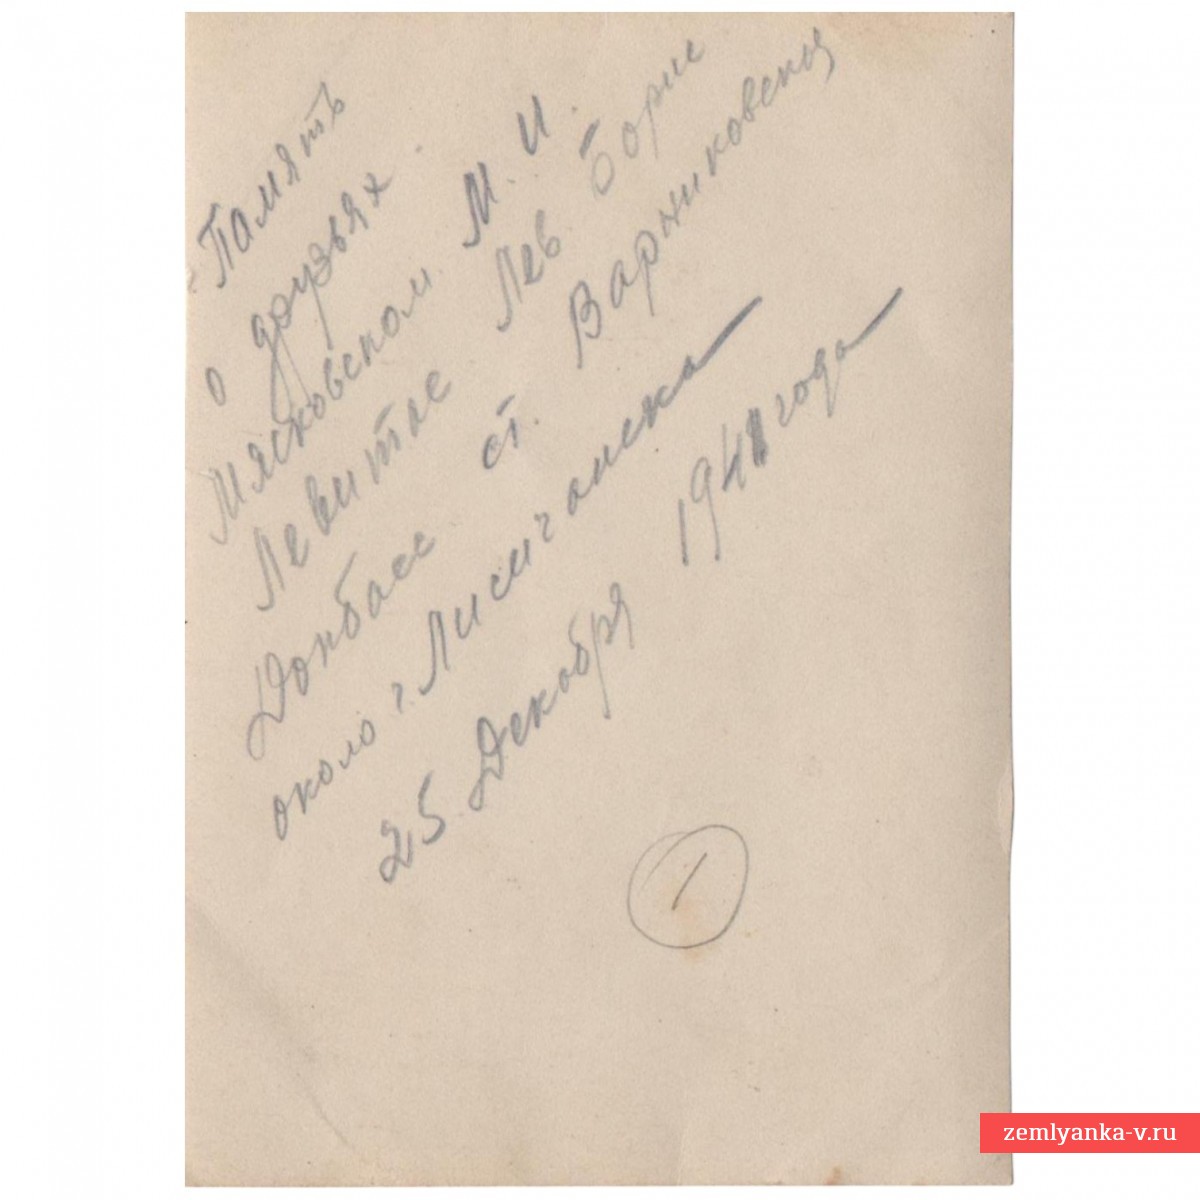 Память
о друзьях.
Мясковском М. И.
Левитас Лев Борис
Донбасс ст. Варниковская
около г. Лисичанска
25 Декабря 1941 года
1
zemlyanka-v.ru